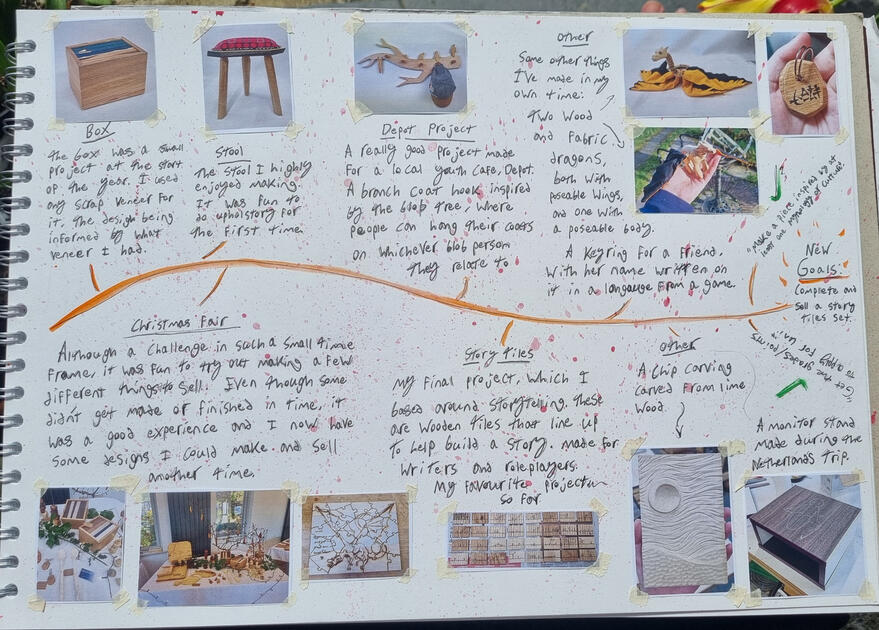 Box
the box was a small
project at the start
of the year. I used
any scrap veneer for
it, the design being
informed by what
veneer I had.
Stool
the stool I highly
enjoyed making.
It was fun to
do upholstory for
the first time.
Depot Project
A really good project made
for a local youth cafe, Depot.
A branch coat hook inspired
by the blob tree, where
people can hang their coats
on whichever blob person
they relate to
Other
Some other things
I've made in my
own time:
two wood
and fabric
dragons,
both with
poseable wings,
and one with
a poseable body.
A keyring for a friend,
with her name written on
it in a langauge from a game.
"Make a piece inspired by at
least one mythology or culture."
New
Goals:
Complete and
sell a story
tiles set.
Christmas Fair
Although a challenge in such a small time
frame, it was fun to try out making a few
different things to sell. Even though some
didn't get made or finished in time, it
was a good experience and I now have
some designs I could make and sell
another time.
Story tiles
My final project, which I
based around storytelling. these
are wooden tiles that line up
to help build a story. made for
writers and roleplayers.
My favourite project
so far
Other
A chip carving
carved from lime
wood.
to apply for uni."
A monitor stand
made during the
Netherlands trip.